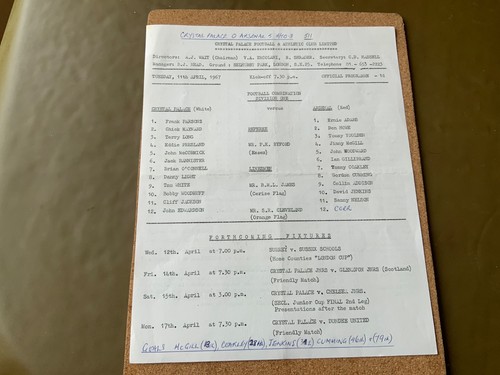 CRYSTAL PALACE 0 ARSENAL 5
CRYSTAL PALACE FOOTBALL & ATHLETIC CLUB LIMITED
Directors: A.J. WAIT (Chairman)
Secretary:
Manager: Ground: SELHURST PARK, LONDON, S.E.25. Telephone 01 - 653 -2223
TUESDAY, 11th APRIL, 1967 Kick-off 7.30 p.m. OFFICIAL PROGRAMME
FOOTBALL COMBINATION
DIVISION ONE
CRYSTAL PALACE (White) versus ARSENAL (Red)
1. Frank PARSONS 1. Ernie ADAMS
2. MAYNARD REFEREE 2. Don HOWE
3. Terry LONG 3. Tommy YOULDEN
4. Eddie PRESLAND 4. Jimmy McGILL
5. John McCORMICK (Essex) 5. John WOODWARD
6. Jack BANNISTER 6. Ian GILLIBRAND
7. Brian O'CONNELL LINESMEN 7. Tommy COAKLEY
8. Danny LIGHT 8. Gordon CUMMING
9. Tom WHITE JAMES 9. Collin ADDISON
10. Bobby WOODRUFF (Cerise Flag) 10. David JENKINS
11. Cliff JACKSON 11. Sammy NELSON
12. John EDWARDSON MR. CLEVELAND 12. CORR
(Orange Flag)
FORTHCOMING FIXTURES
Wed. 12th. April at 7.00 p.m. SURREY v. SUSSEX SCHOOLS
(Home Counties "LONDON CUP")
Fri. 14th. April at 7.30 p.m. CRYSTAL PALACE JNRS v. GLENAVON JNRS (Scotland)
(Friendly Match)
Sat. 15th. April at 3.00 p.m. CRYSTAL PALACE v. CHELSEA JNRS.
Junior Cup FINAL 2nd Leg)
Presentations after the match
Mon. 17th. April at 7.30 p.m. CRYSTAL PALACE v. DUNDEE UNITED
(Friendly Match)
GOALS McGILL COAKLEY JENKINS CUMMING